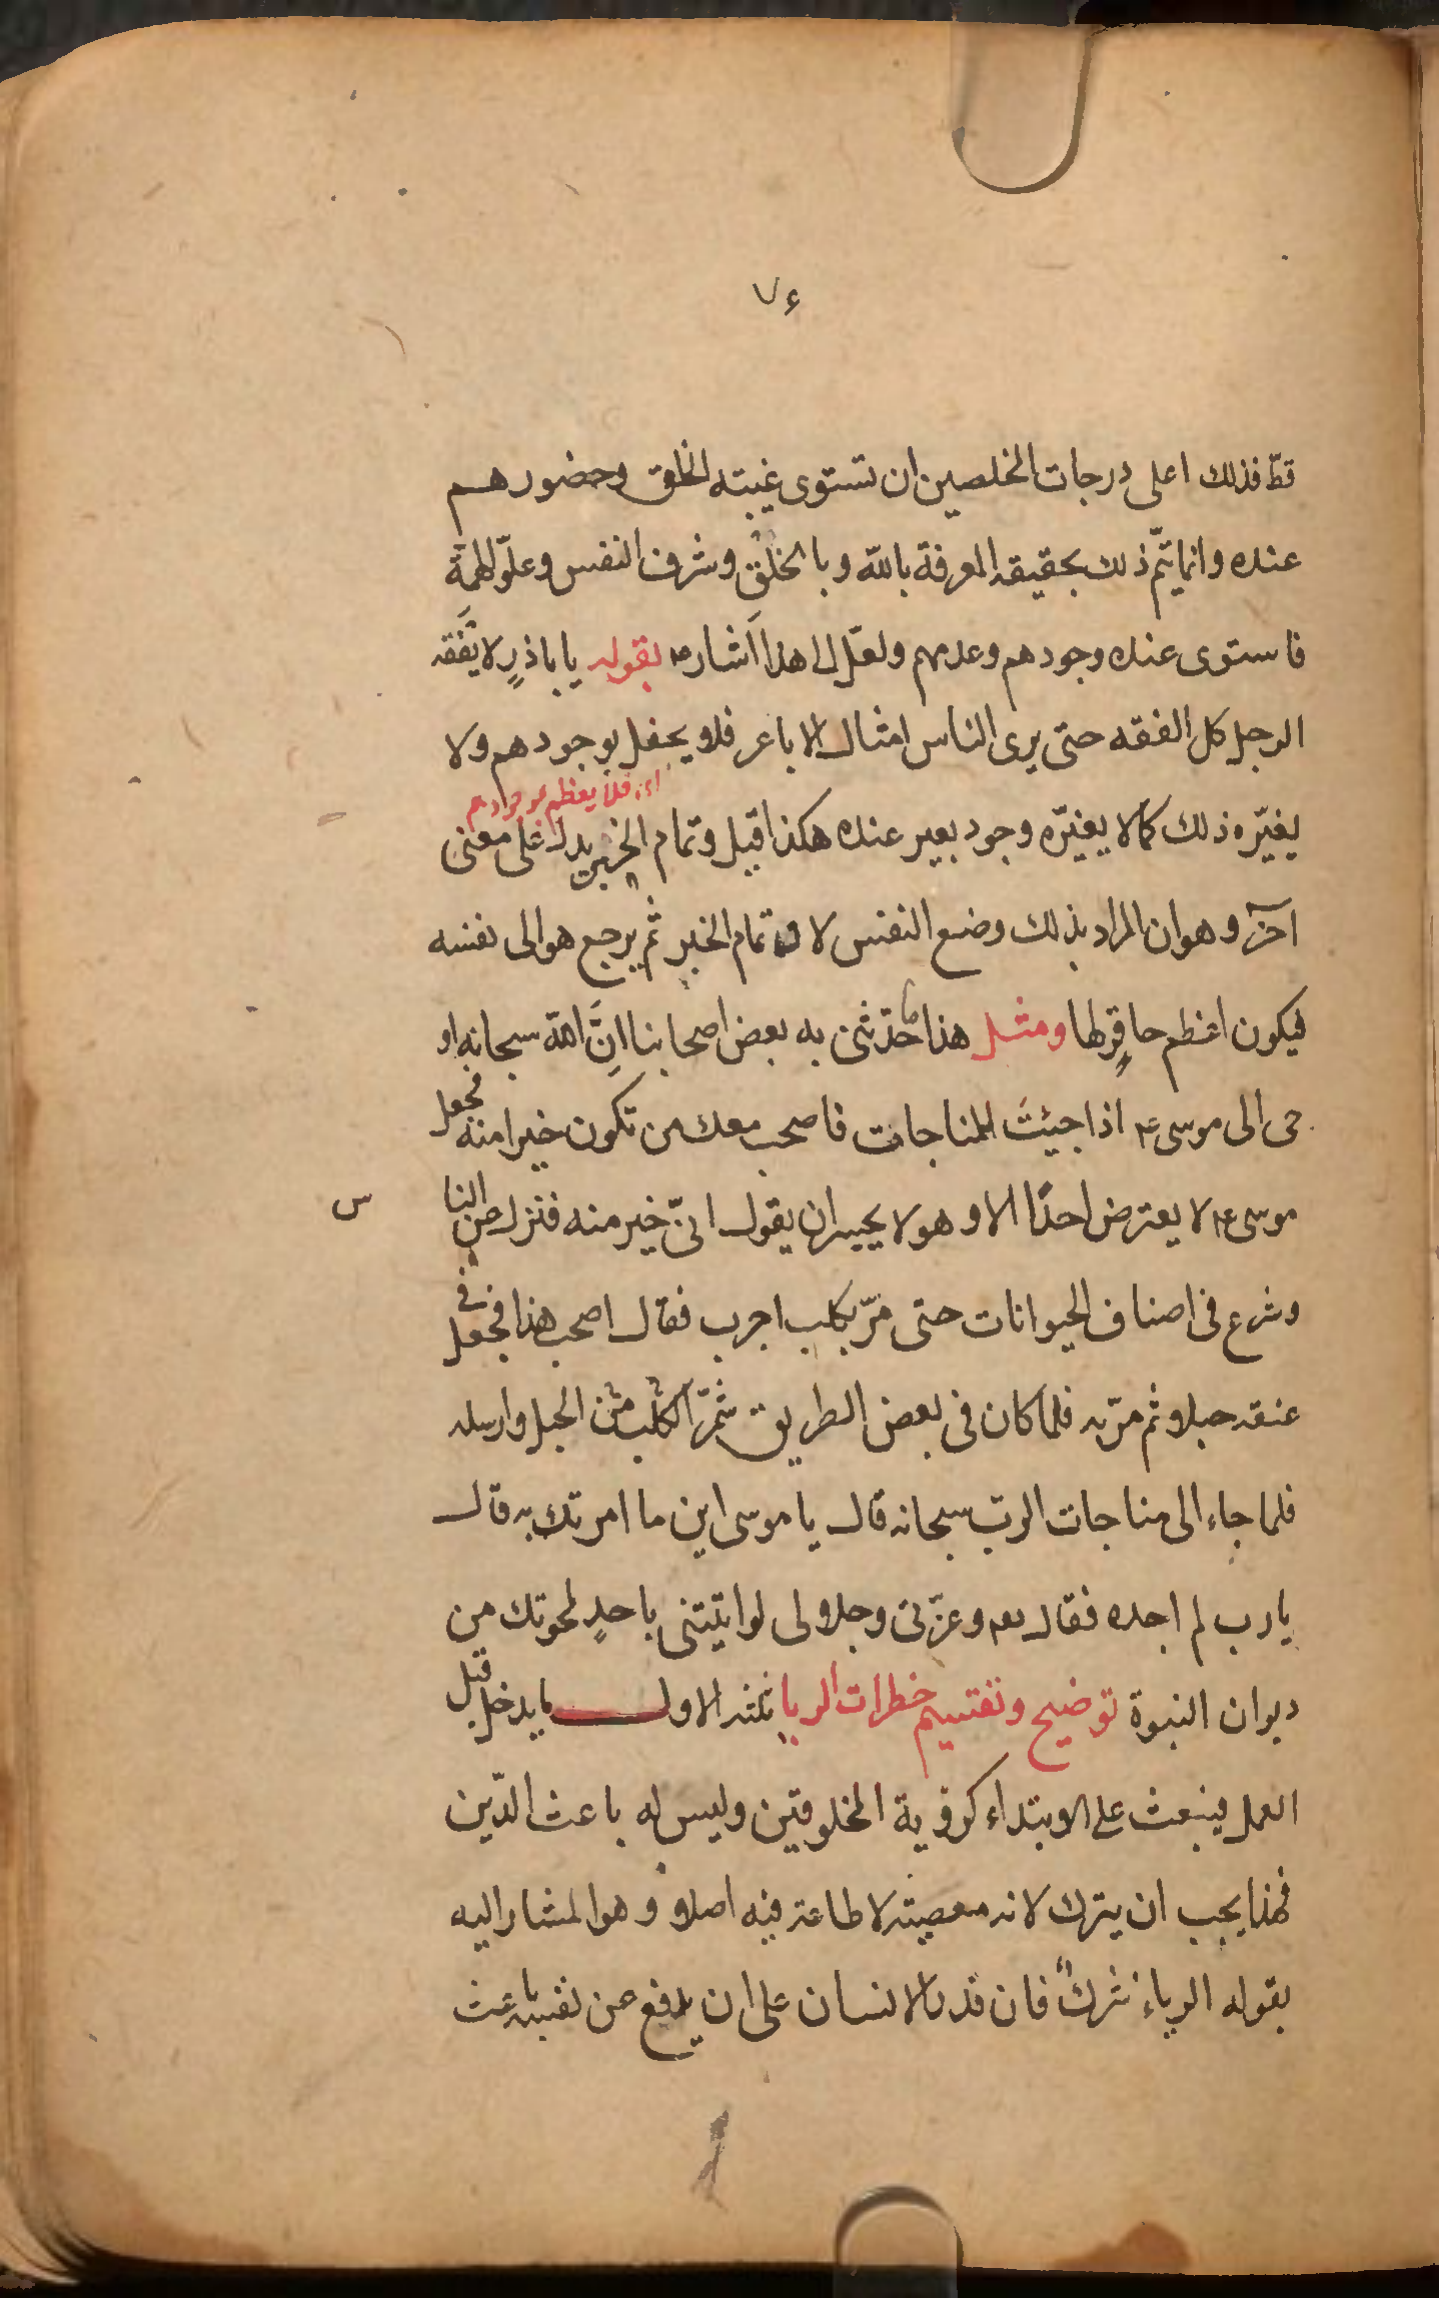 ٧۶
قطّ فذلك اعلى درجات المخلصين ان تستوى غيبته الخلق وحضورهم
عنده وانما يتّم ذلك بحقيقه المعرفة باللّه وبالخلق وشرف النفس وعلوّ الهمة
فاستوى عنده وجودهم وعدمهم ولعلّ الى هذا اَشارص بقوله يا باذرٍ لا يَفقَه
الرجل كل الفقه حتى يرى الناس امثال الاباعر فلا يحفل بوجودهم ولا
اى فلا يعظم
يغيّره ذلك كما لا يغيّره وجود بعير عنده هكذا قيل وتمام الخبر يدل على معنى
آخر وهو ان المراد بذلك وضع النفس لان تمام الخبر ثم يرجع هو الى نفسه
فيكون اعظم حاقرٍ لها ومثل هذا ما حدّثنى به بعض اصحابنا انَّ اللّه سبحانه او
حى الى موسى ع اذا جيئتَ للمناجات فاصحب معك من تكون خيرا منه فجعل
موسى ع لا يعترض احدًا الا وهو لا يجيسر ان يقول انىّ خير منه فنزل عن النا
س
وشرع فى اصناف الحيوانات حتى مرّ بكلب اجرب فقال اصحب هذا فجعل فى
عنقه حبلا ثم مرّ به فلما كان فى بعض الطريق شمّر الكلب من الحبل وارسله
فلما جاء الى مناجات الرب سبحانه قال يا موسى اين ما امرتك به قال
يا رب لم اجده فقال تعم وعزّتى وجلالى لو اتيتنى باحدٍ لمحوتك من
ديوان النبوة توضيح وتقسيم خطرات الريا ثلثه الاول ما يدخل قبل
العمل فينبعث على الابتداء كرؤية المخلوقين وليس له باعث الدّين
فهذا يجب ان يترك لانه معصيته لا طاعة فيه اصلا وهو المشار اليه
بقوله الرياء شركٌ فان قدر الانسان على ان يدفع عن نفسه باعث